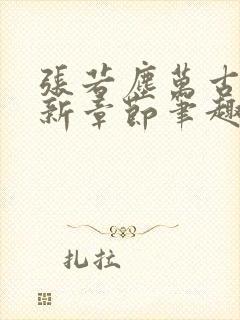 張若塵萬古
新章節筆趣
扎拉